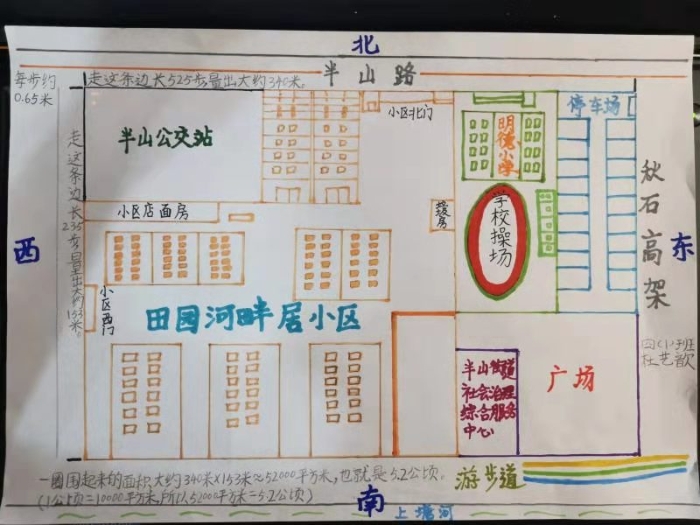 北
半山路
每步约
0.65米
走这条边长525步,量出大约340米。
走这条边长235步,量出大约153米。
半山公交站
小区北门
明德小学
停车场
学校操场
小区店面房
西
东
秋石高架
小区西门
田园河畔居小区
四(1)班
杜艺歆
半山街道
社会治理
综合服务
中心
广场
一圈围起来的面积大约340米×153米≈52000平方米,也就是5.2公顷。
(1公顷=10000平方米,所以52000平方米=5.2公顷)
游步道
南
上塘河